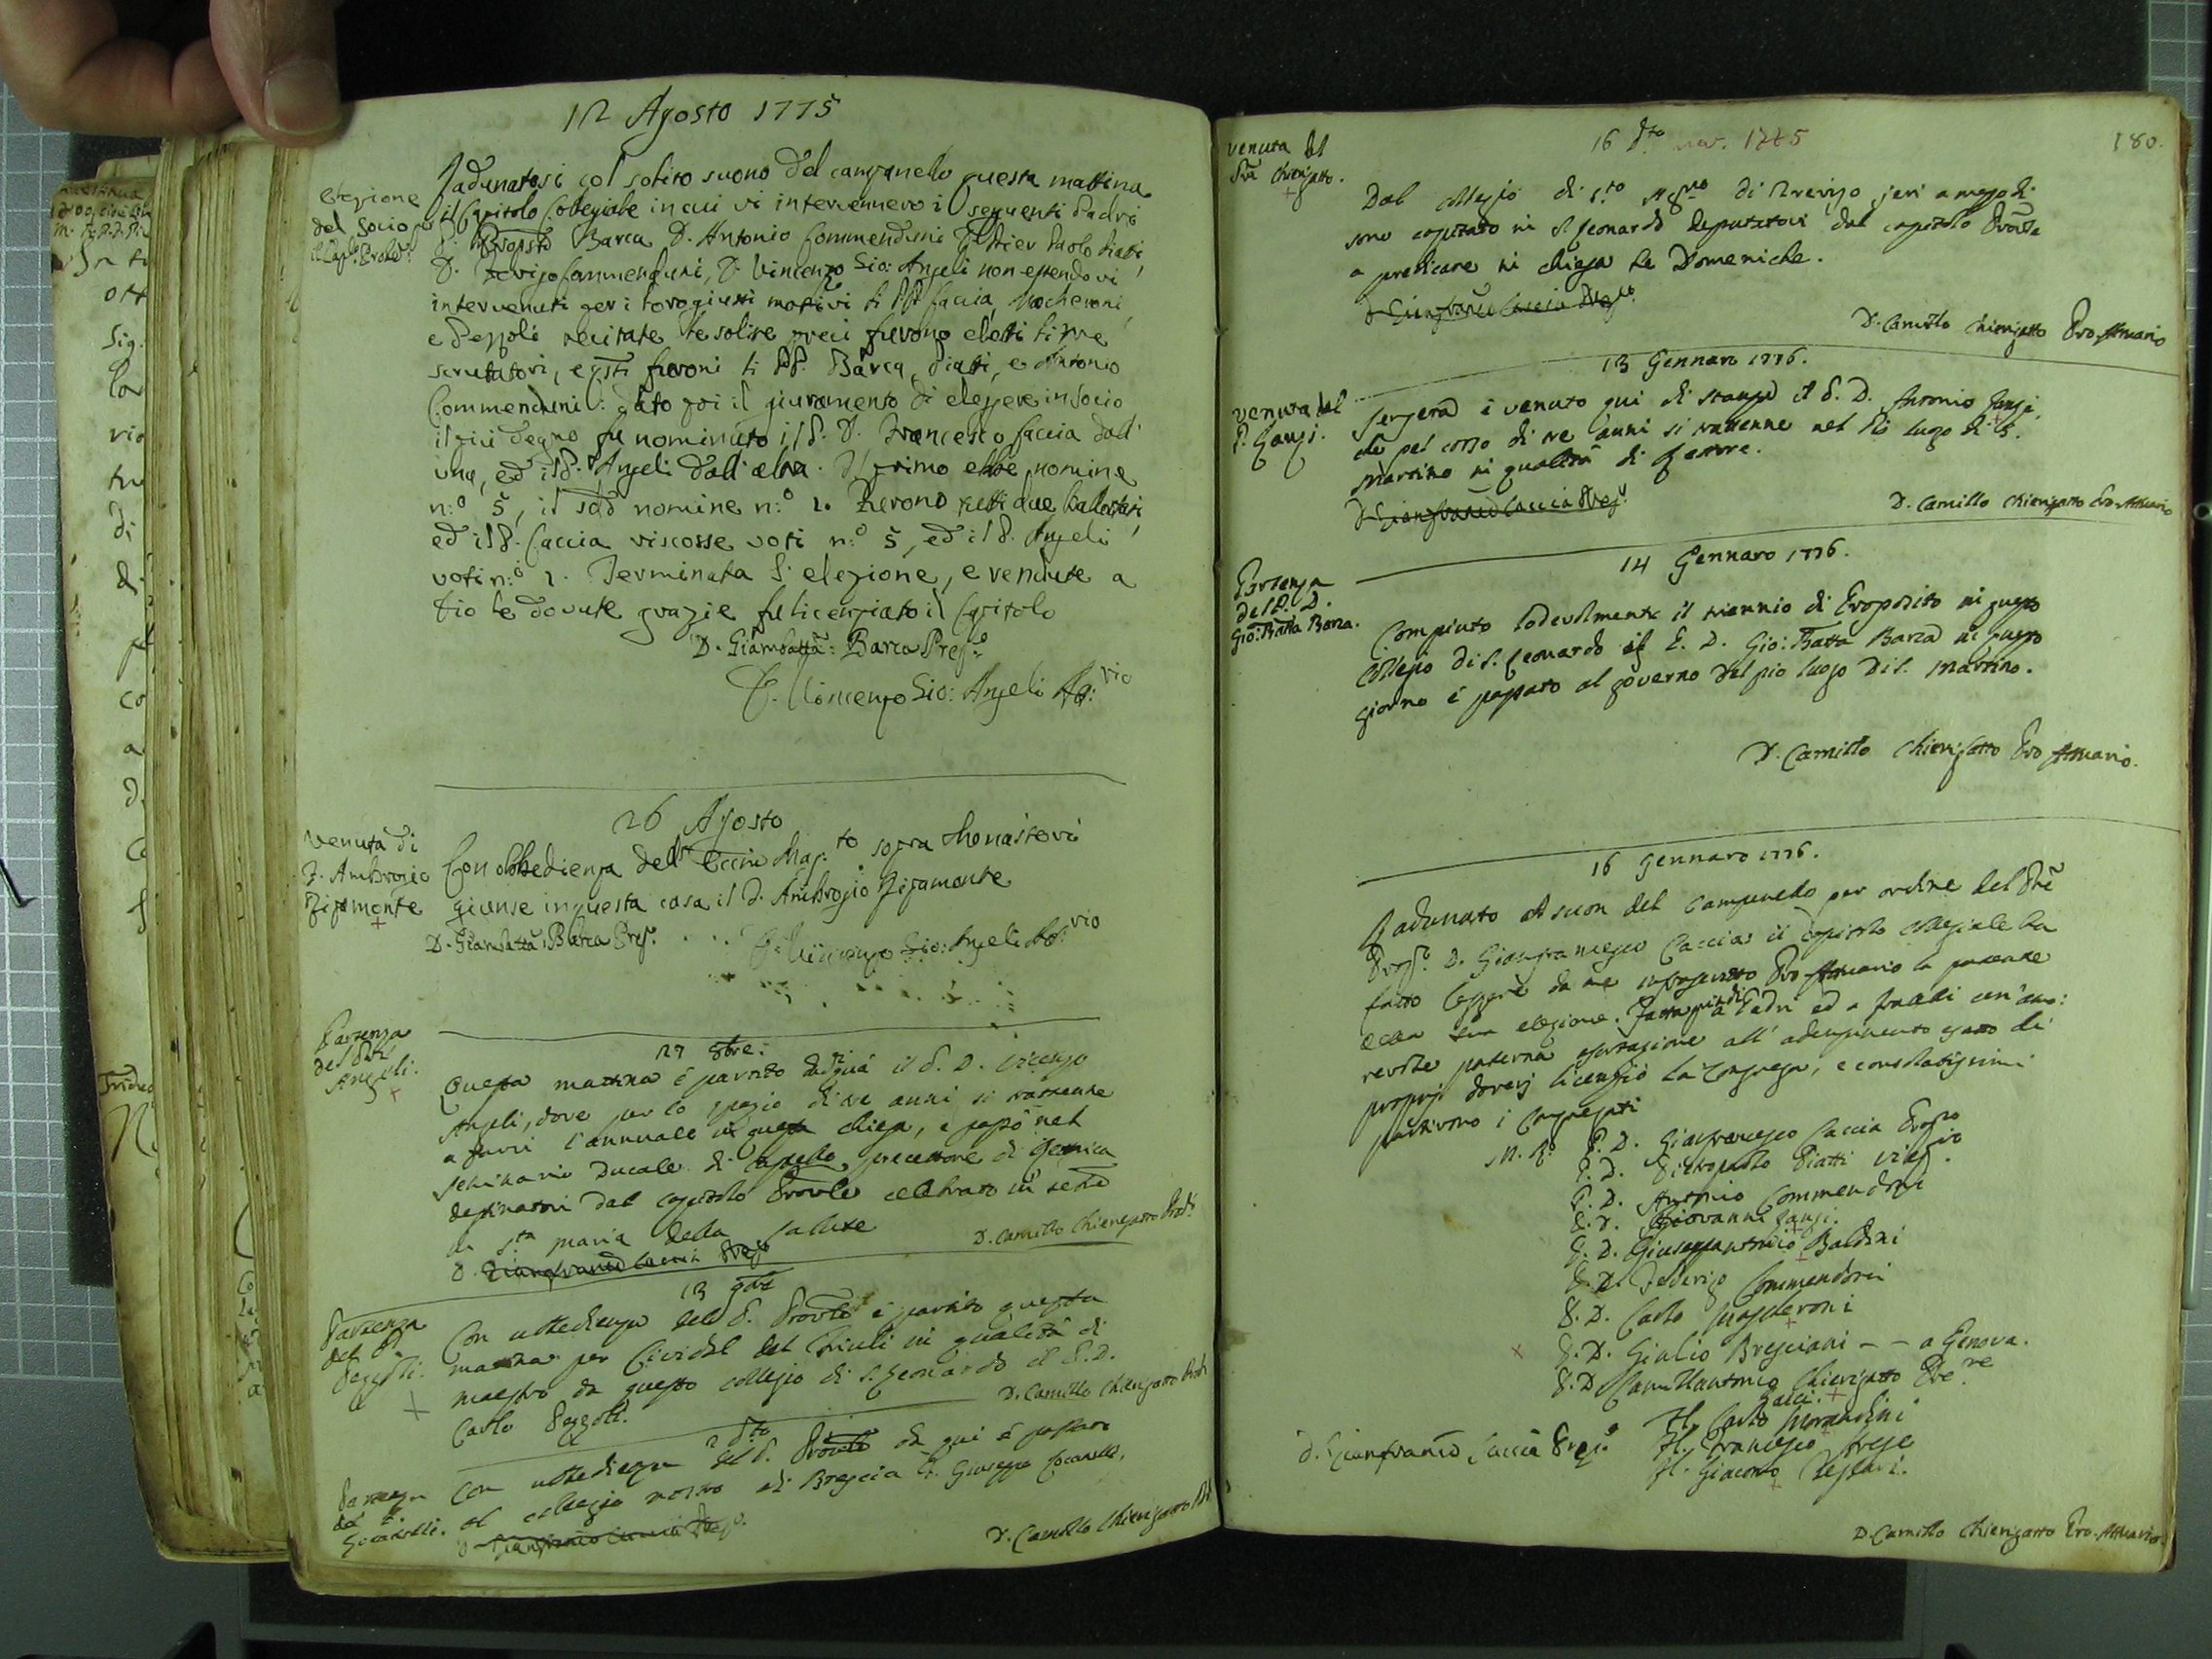 12 Agosto 1775
elezione
del Socio
Radunatosi col solito suono del campanello questa mattina
il Capitolo Collegiale in cui vi intervennero i seguenti Padri
Barca D. Antonio Commenduni
Commenduni, D. Vincenzo Gio: Angeli non essendovi
intervenuti per i loro giusti motivi li PP. Caccia,
e Pezzoli recitate le solite preci furono eletti li tre
scrutatori, e questi furono li PP. Barca, Piatti, e Antonio
Commenduni: dato poi il giuramento di eleggere in Socio
il più degno fu nominato il P. D. Francesco Caccia dall'
una, ed il P. Angeli dall'altra. Il primo ebbe nomine
n:o 5, il sdo nomine n:o 1. Furono fatti due
ed il P. Caccia riscosse voti n:o 5, ed il P. Angeli
voti n:o 1. Terminata l'elezione, e rendute a
Dio le dovute grazie fu licenziato il Capitolo
D. Giambatta: Barca Prep:o
D. Vincenzo Gio: Angeli
26 Agosto
Venuta di
F. Ambrogio
Con obbedienza dell' Eccmo Mag:to sopra Monasteri
giunse in questa casa il D. Ambrogio
D. Giambatta: Barca Prep:o
D. Vincenzo Gio: Angeli
Partenza
del Pre
Angeli.
27 8bre:
Questa mattina è partito di quà il P. D. Vicenzo
Angeli, dove per lo spazio di tre anni si trattenne
a servir l'annuale in questa chiesa, e passò nel
seminario Ducale di Castello precettore di
destinatovi dal capitolo Provle celebrato in
di Sta maria della salute
D. Gianfranco Caccia Prep.o
D. Camillo Chieregatto
13 9bre
Partenza
del P.
Pezzoli.
Con ubbedienza del P. Provle è partito questa
mattina per Cividal del Friuli in qualità di
maestro da questo collegio di S. Leonardo il P. D.
Carlo Pezzoli.
D. Camillo Chieregatto
Partenza
del F.
Con ubbedienza del P. Provle da qui è passato
al collegio nostro di Brescia F. Giuseppe
D. Gianfranco Caccia Prep.o
D. Camillo Chieregatto
180.
venuta del
Pre Chieregatto.
16 dto nov. 1775
Dal collegio di S.to di Trevigo jeri a mezzodì
sono capitato in S. Leonardo deputatovi dal capitolo Provle
a predicare in chiesa le Domeniche.
D. Gianfranco Caccia Prep.o
D. Camillo Chieregatto Pro Attuario
13 Gennaro 1776.
venuta del
P. Zangi.
è venuto qui di stanza il P. D. Antonio
che pel corso di tre anni si trattenne nel Pio luogo di S.
Martino in qualità di
D. Gianfranco Caccia Prep.o
D. Camillo Chieregatto Pro-Attuario
14 Gennaro 1776.
Partenza
del P. D.
Gio: Batta Barca.
Compiuto lodevolmente il triennio di Proposito in questo
Collegio di S. Leonardo il P. D. Gio: Batta Barca in questo
giorno è passato al governo del pio luogo di S. Martino.
D. Camillo Chieregatto Pro Attuario.
16 Gennaro 1776.
Radunato al suon del campanello per ordine del Pre
Prep.o D. Gianfrancesco Caccia il capitolo collegiale ha
fatto leggere da me infrascritto Pro-Attuario la patente
della sua elezione. Fatta quindi a Padri ed a fratelli un'amo:
revole paterna esortazione all' adempimento esatto di
proprj doveri licenziò la Congrega, e consolatissimi
partirono i Congregati
P. D. Gianfrancesco Caccia
P. D. Pietropaolo Piatti
P. D. Antonio Commenduni
P. D. Giovanni
P. D. Giuseppantonio Baldini
P. D. Federigo Commenduni
P. D. Carlo
P. D. Giulio Bresciani - - a Genova.
P. D. Camillantonio Chieregatto
Laici.
Fl. Carlo Morandini
Fl. Francesco
Fl. Giacomo
D. Gianfranco Caccia Prep.o
D. Camillo Chieregatto Pro-Attuario.